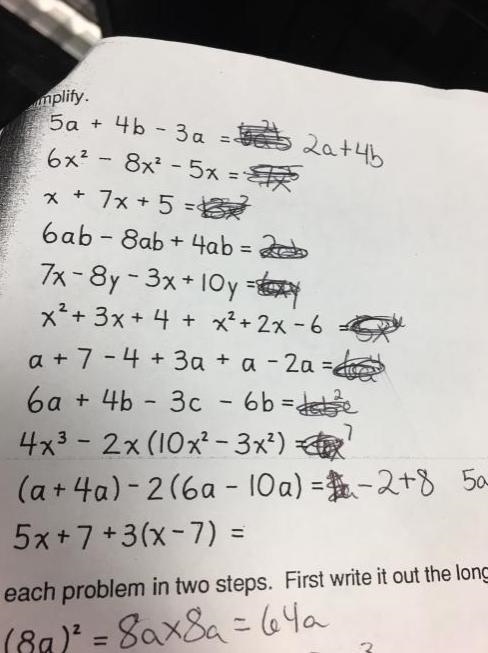 mplify.
5a + 4b - 3a = 2a+4b
6x² - 8x² - 5x =
x + 7x + 5 =
6ab - 8ab + 4ab =
7x - 8y - 3x + 10y =
x² + 3x + 4 + x² + 2x - 6 =
a + 7 - 4 + 3a + a - 2a =
6a + 4b - 3c - 6b =
4x³ - 2x(10x² - 3x²) = 7
(a + 4a) - 2(6a - 10a) = -2+8 5a
5x + 7 + 3(x - 7) =
each problem in two steps. First write it out the long
(8a)² = 8a×8a = 64a